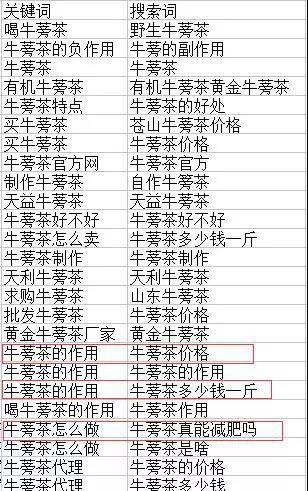 关键词 搜索词
喝牛蒡茶 野生牛蒡茶
牛蒡茶的负作用 牛蒡的副作用
牛蒡茶 牛蒡茶
有机牛蒡茶 有机牛蒡茶黄金牛蒡茶
牛蒡茶特点 牛蒡茶的好处
买牛蒡茶 苍山牛蒡茶价格
买牛蒡茶 牛蒡茶价格
牛蒡茶官方网 牛蒡茶官方
制作牛蒡茶 自作牛篣茶
天益牛蒡茶 天益牛蒡茶
牛蒡茶好不好 牛蒡茶好不好
牛蒡茶怎么卖 牛蒡茶多少钱一斤
牛蒡茶制作 牛蒡茶制作
天利牛蒡茶 天利牛蒡茶
求购牛蒡茶 山东牛蒡茶
批发牛蒡茶 牛蒡茶价格
黄金牛蒡茶厂家 黄金牛蒡茶
牛蒡茶的作用 牛蒡茶价格
牛蒡茶的作用 牛蒡茶的作用
牛蒡茶的作用 牛蒡茶多少钱一斤
喝牛蒡茶的作用 牛蒡茶作用
牛蒡茶怎么做 牛蒡茶真能减肥吗
牛蒡茶怎么做 牛蒡茶是啥
牛蒡茶代理 牛蒡茶的价格
牛蒡茶代理 牛蒡茶多少钱